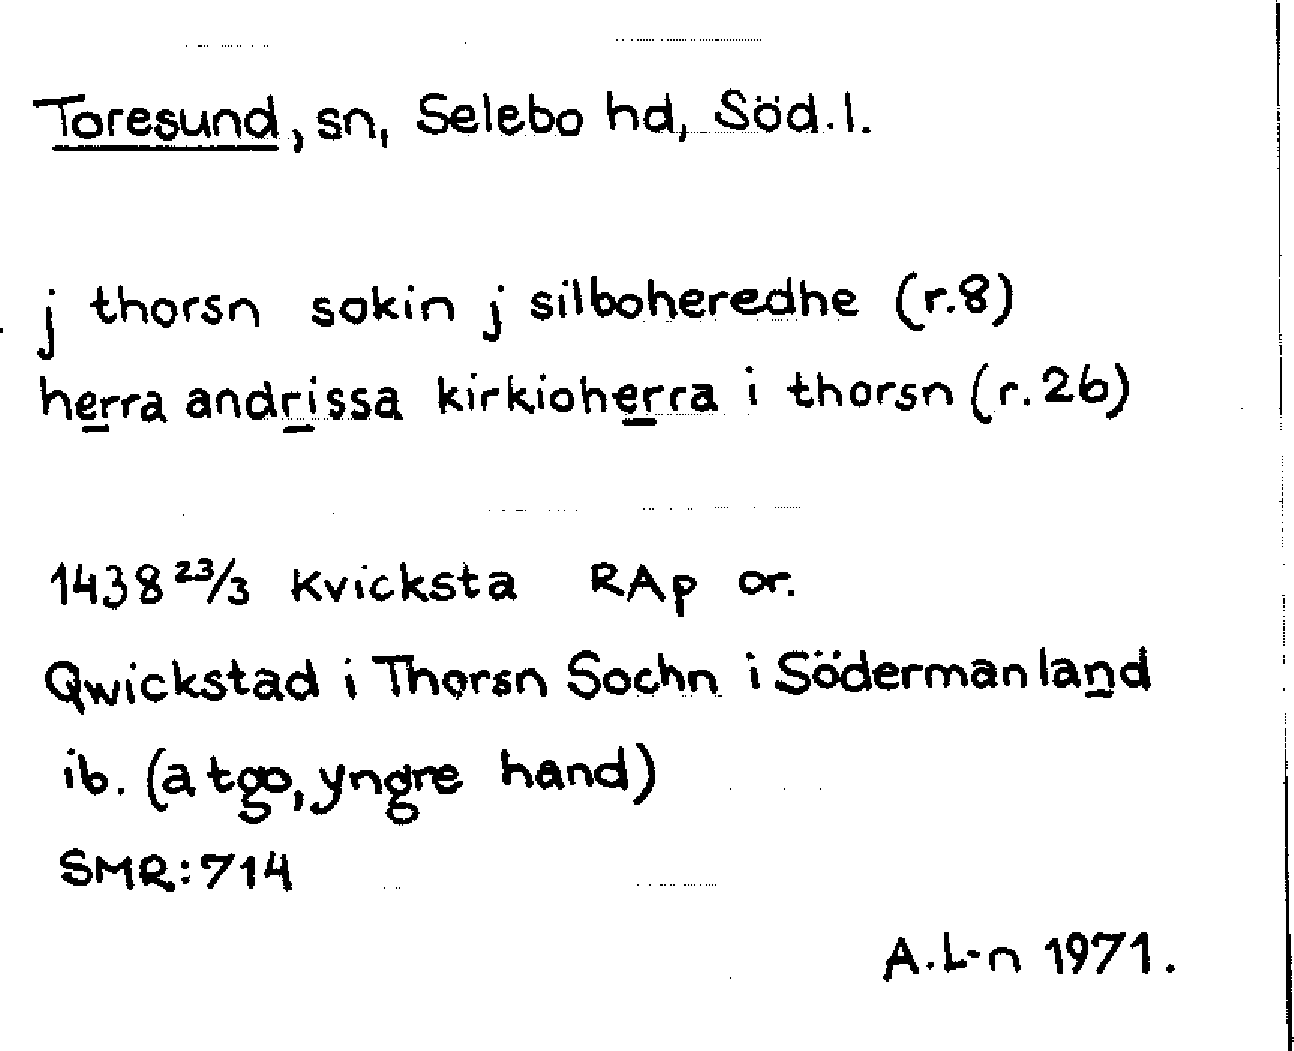 Toresund, sn, Selebo hd, Söd.l.
j thorsn sokin j silboheredhe (r.8)
herra andrissa kirkioherra i thorsn (r.26)
1438 23/3 Kvicksta RAp or.
Qwickstad i Thorsn Sochn i Södermanland
ib. (atgo, yngre hand)
SMR:714
A.L-n 1971.